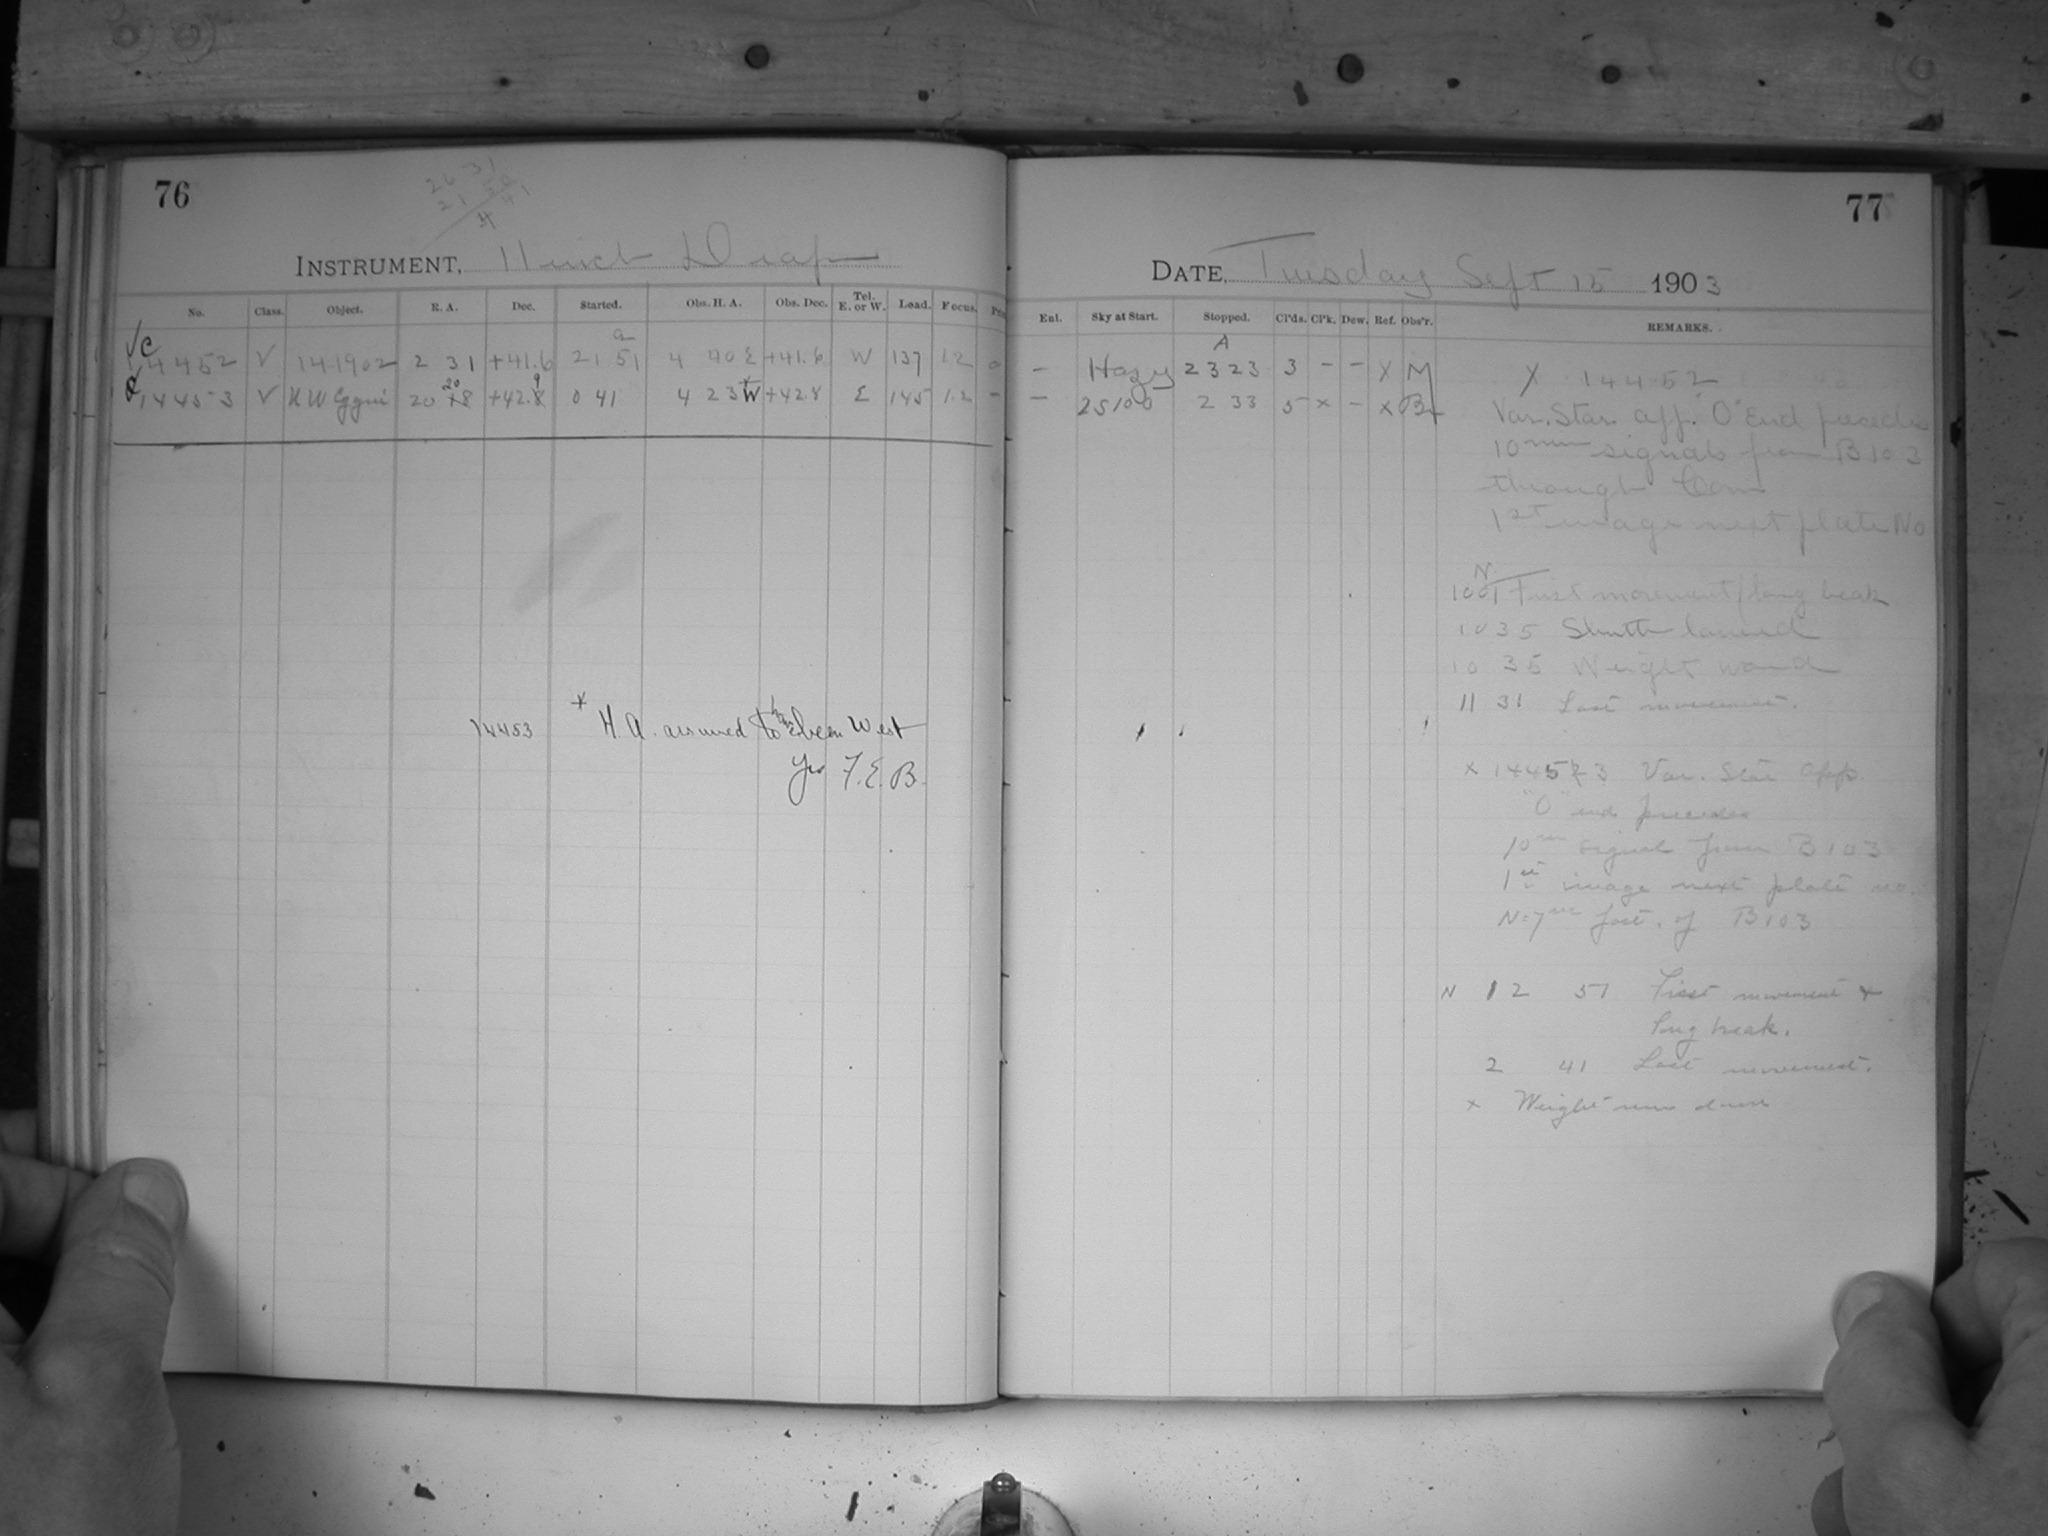 76
26 31
21 50
4 41
INSTRUMENT, 11 inch Drap
No. Class. Object. R. A. Dec. Started. Obs. H. A. Obs. Dec. Tel. E. or W. Load. Focus.
14452 V 141902 2 31 +41.6 21 51 4 40 E +41.6 W 137 12
14453 V 20 +42.8 0 41 4 23 W +42.8 E 145 1.2 -
14453 x H. A. assumed to have been West
Yes F. E. B.
77
DATE, Tuesday Sept 15 1903
Enl. Sky at Start. Stopped. Cl'ds. Cl'k. Dew. Ref. Obs'r. REMARKS.
A
- Hazy 23 23 3 - - X M
- 25100 2 33 5 x - x
X 14452
Var. Star app. "O" End precedes
10 min signals from B 103
through Com
1st image next plate No
N
10 01 First movement / long break
10 35 Shutter
10 35 Weight wound
11 31 Last movement.
x 14453 Var. Star app.
"O" end precedes
10 signal from B 103
1st image next plate no.
N=7 sec fast. of B 103
N 12 51 First movement +
long break.
2 41 Last movement.
x Weight run down